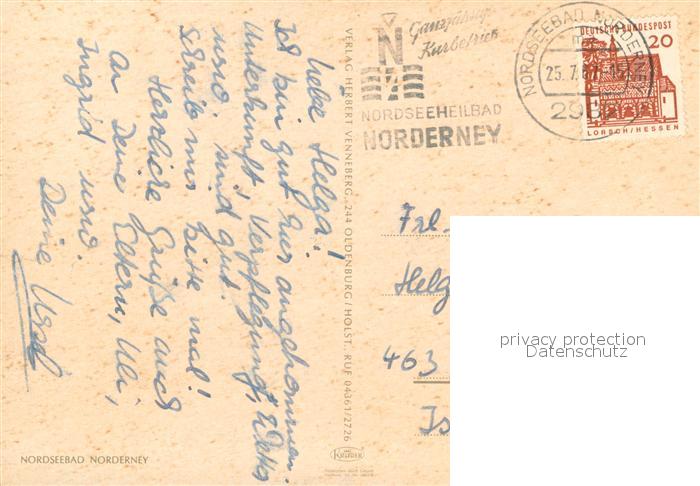 Liebe Helga!
Ich bin gut hier angekommen.
Unterkunft, Verpflegung, Wetter
usw. sind gut.
Schreibe mir bitte mal!
Herzliche Grüße auch
an Deine Eltern, Uli,
Ingrid usw.
Deine Ursel
NORDSEEBAD NORDERNEY
VERLAG HERBERT VENNEBERG, 244 OLDENBURG/HOLST., RUF 04361/2726
KRÜGER
Ganzjähriger
Kurbetrieb
N
NORDSEEHEILBAD
NORDERNEY
NORDSEEBAD NORDERNEY
25.7.
2982
DEUTSCHE BUNDESPOST
20
LORSCH/HESSEN
Frl.
Helg
463
Is
privacy protection
Datenschutz